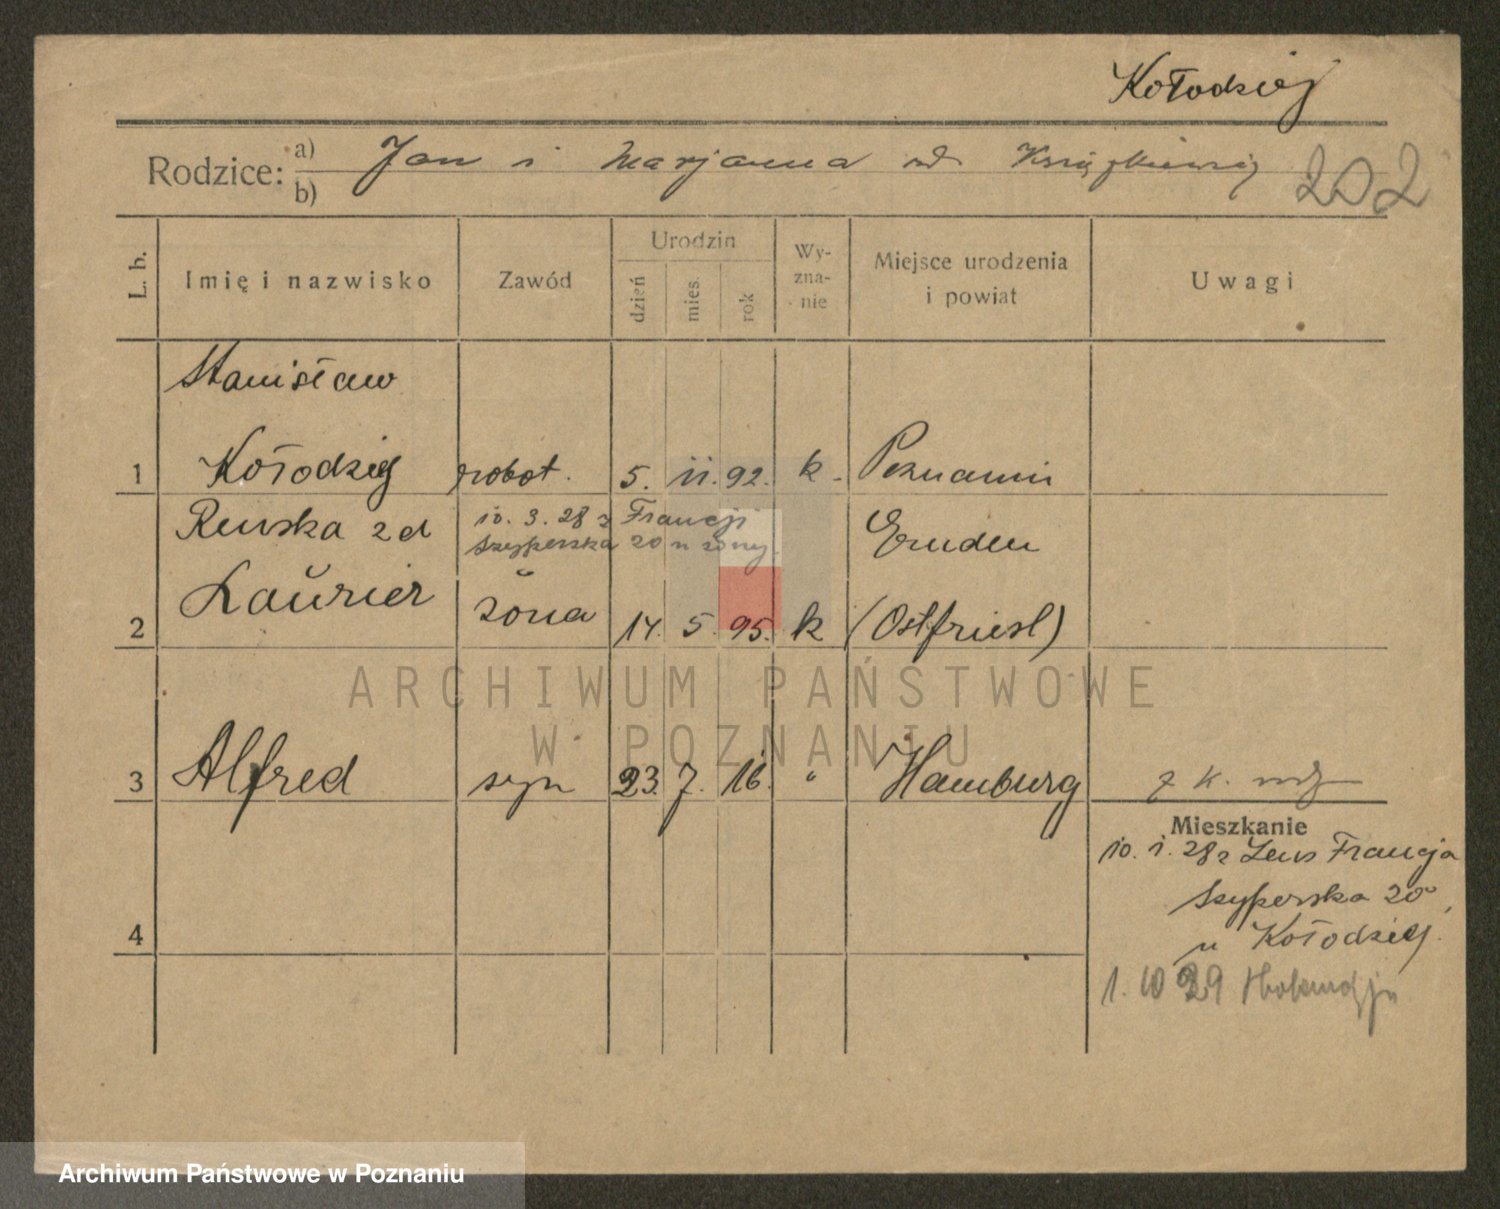 Kołodziej
Rodzice: a) Jan i Marjanna
b)
202
L. b.
Imię i nazwisko
Zawód
Urodzin
dzień
mies.
rok
Wy-
zna-
nie
Miejsce urodzenia
i powiat
Uwagi
Stanisław
1 Kołodziej robot. 5. 11. 92. k. Poznaniu
10. 3. 28 z Francji
Szyperska 20 u żony.
Emden
2 Laŭrier żona 14. 5. 95. k (Ostfriesl)
3 Alfred syn 23. 7. 16. " Hamburg
Mieszkanie
10. 1. 28 z Lens Francja
Szyperska 20
4 u Kołodziej.
1. 10 29
ARCHIWUM PAŃSTWOWE
W POZNANIU
Archiwum Państwowe w Poznaniu